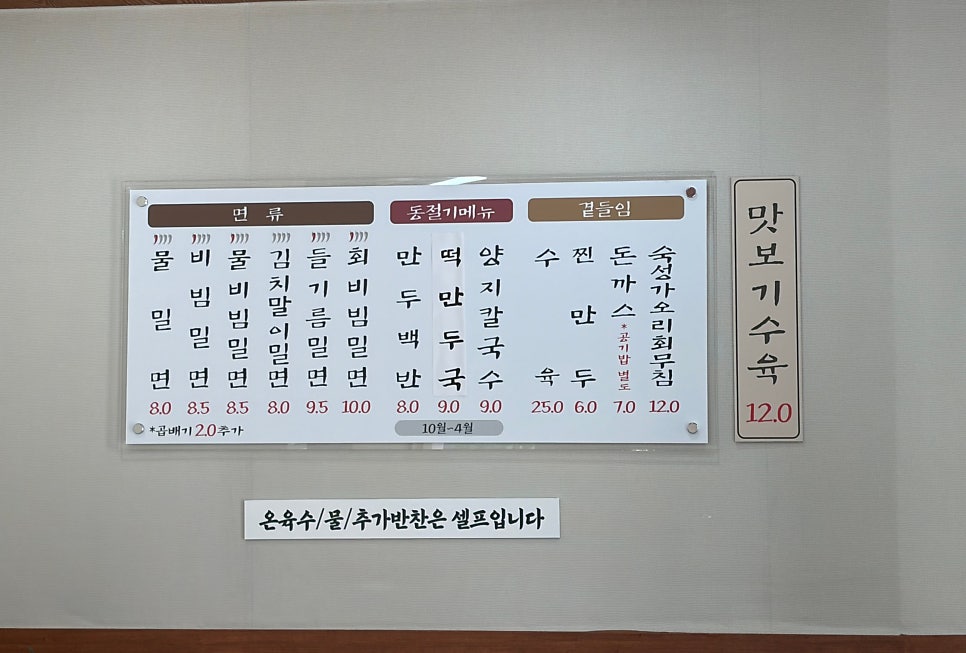 면 류
물밀면 8.0
비빔밀면 8.5
물비빔밀면 8.5
김치말이밀면 8.0
들기름밀면 9.5
회비빔밀면 10.0
*곱배기 2.0 추가
동절기메뉴
만두백반 8.0
떡만두국 9.0
양지칼국수 9.0
10월~4월
곁들임
수육 25.0
찐만두 6.0
돈까스 *공기밥 별도 7.0
숙성가오리회무침 12.0
맛보기수육 12.0
온육수/물/추가반찬은 셀프입니다